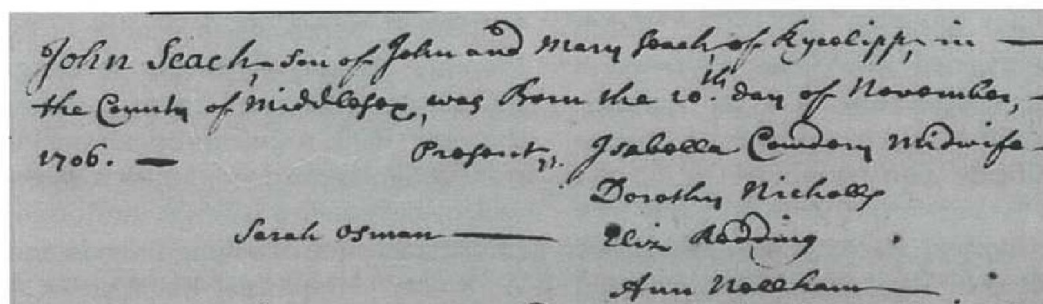 John Seach, son of John and Mary Seach, of Rycelipp, in —
the County of Middlesex, was Born the 10th. day of November, —
1706. — Present, Isabella Cowdery Midwife —
Dorothy Nicholls
Sarah Osman — Eliz Redding
Ann Needham —